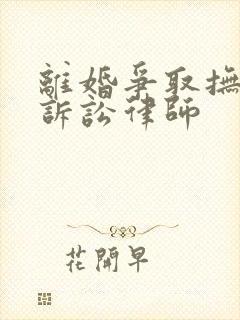 離婚爭取撫
訴訟律師
花開早